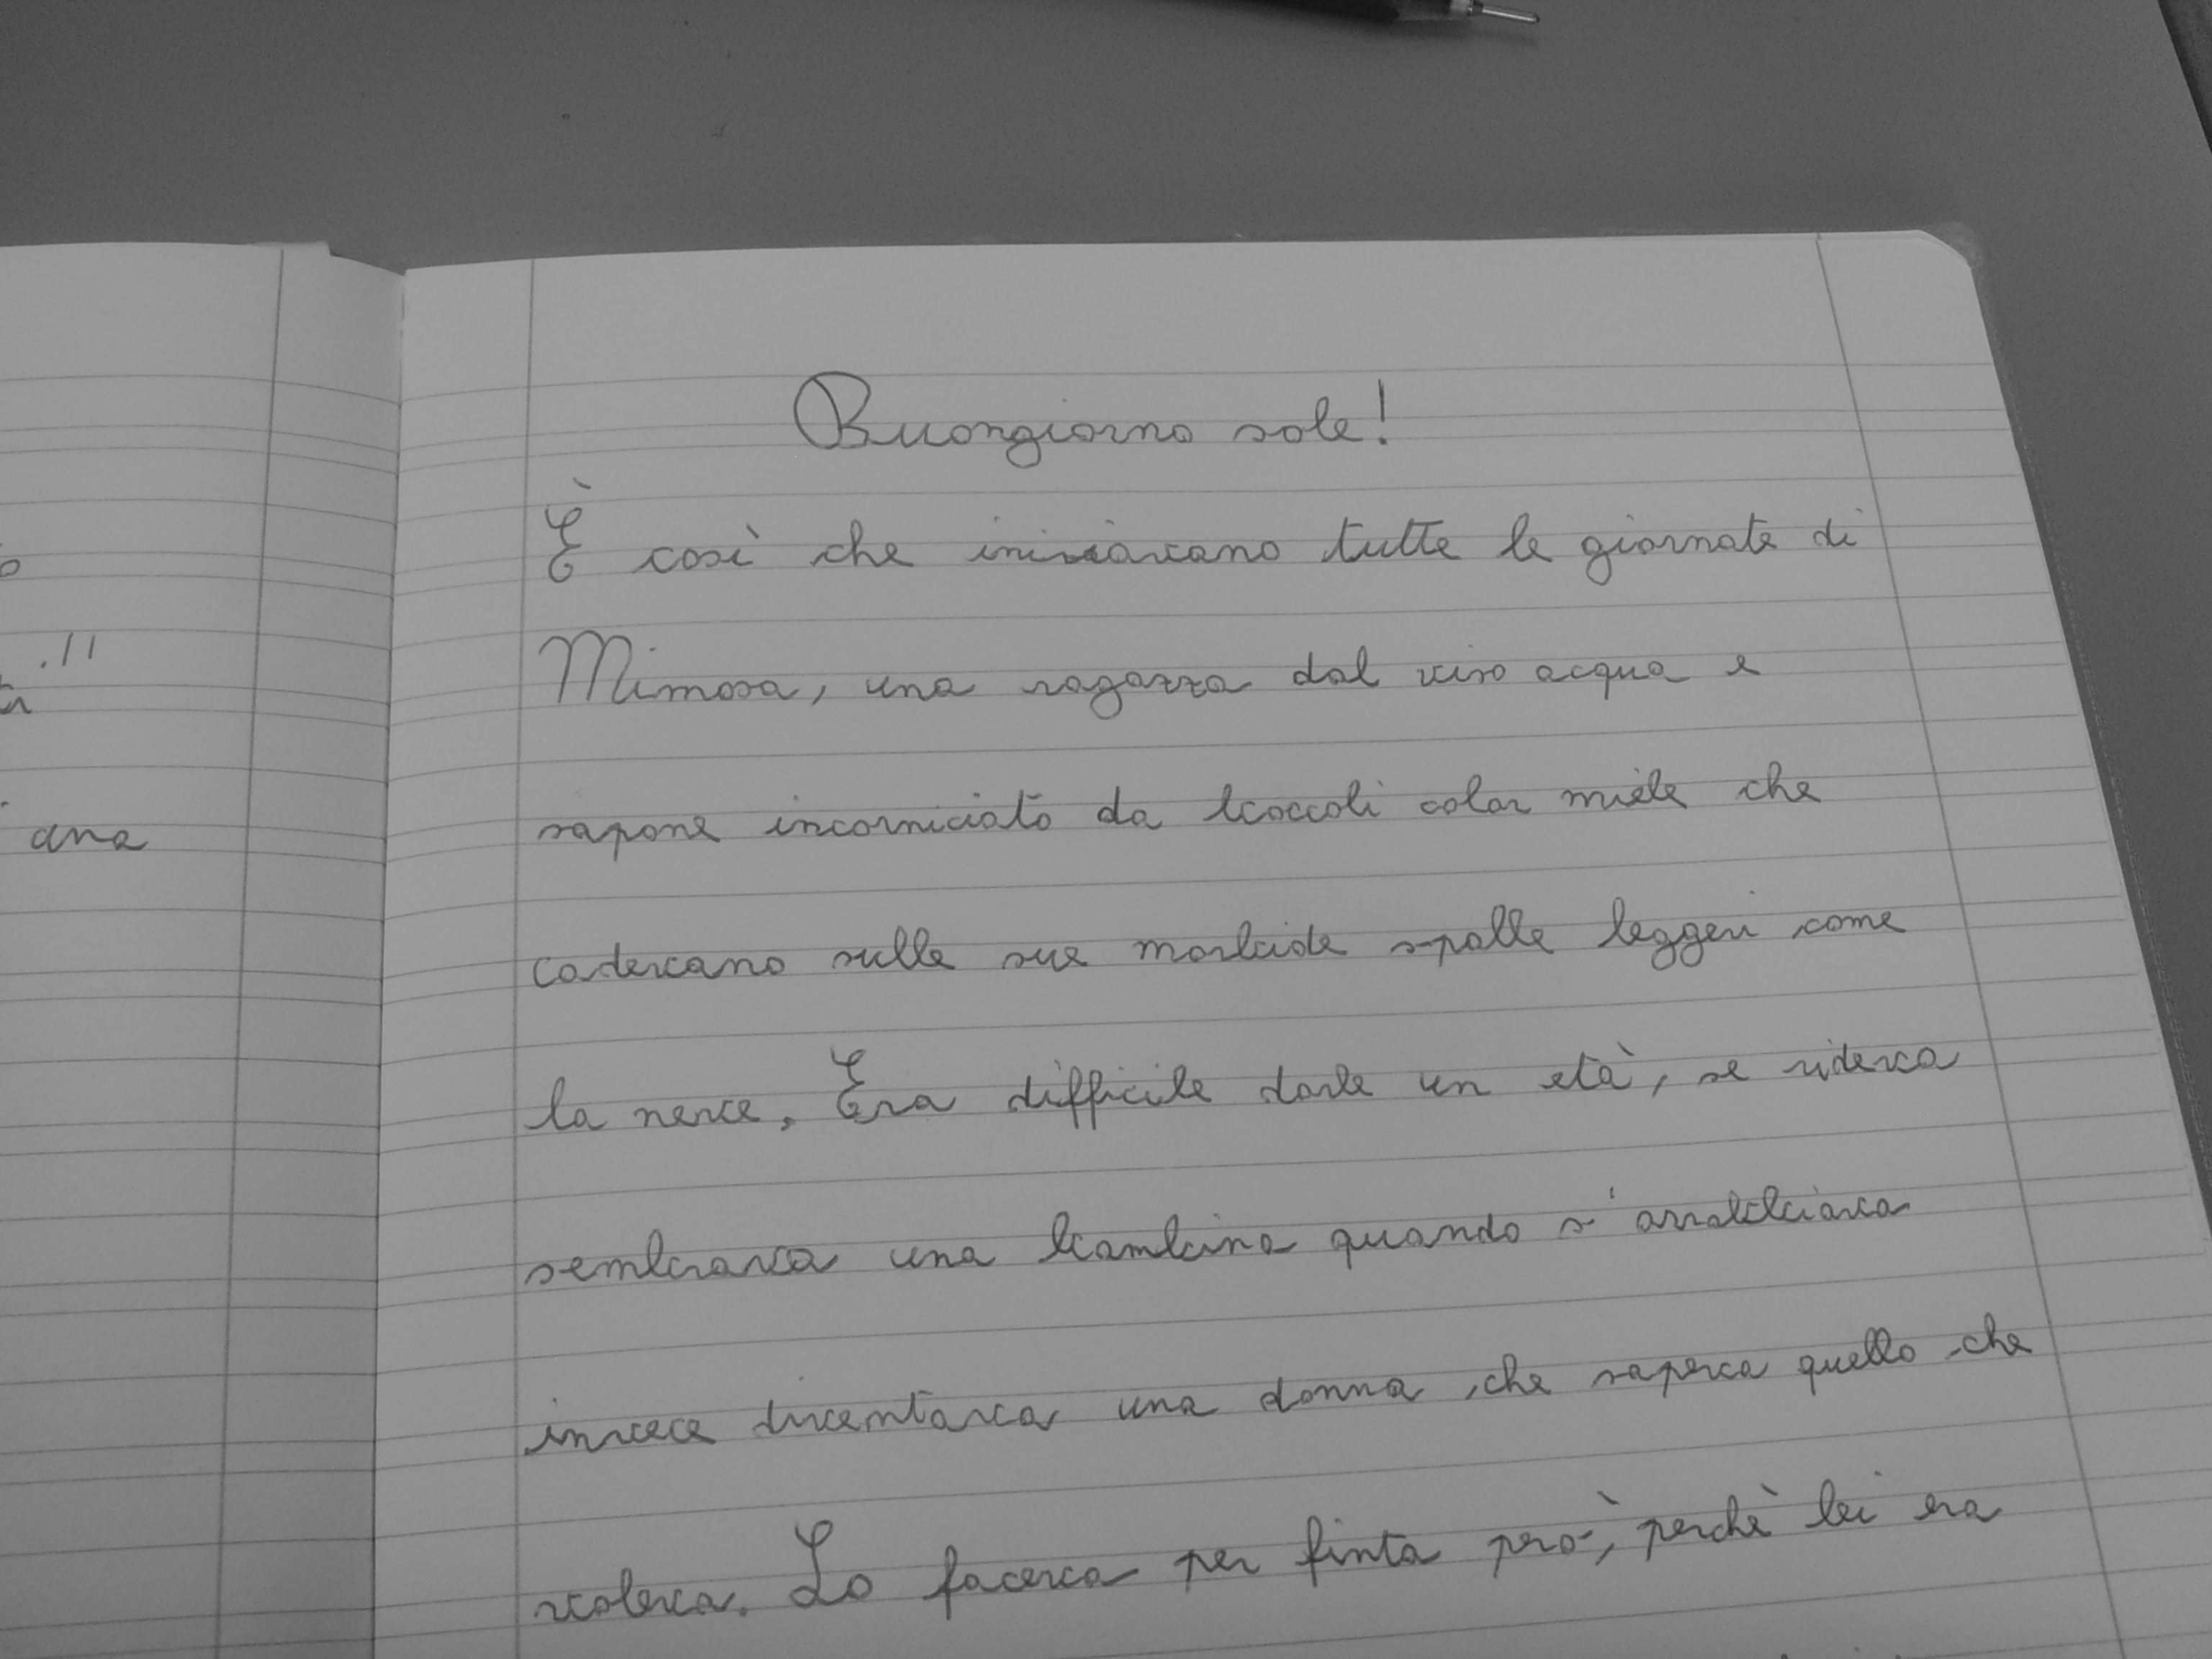 Buongiorno sole!
È così che iniziavano tutte le giornate di
Mimosa, una ragazza dal viso acqua e
sapone incorniciato da boccoli color miele che
cadevano sulle sue morbide spalle leggeri come
la neve. Era difficile darle un età, se rideva
sembrava una bambina quando s'arrabbiava
invece diventava una donna che sapeva quello che
voleva. Lo faceva per finta però, perchè lei era
ana